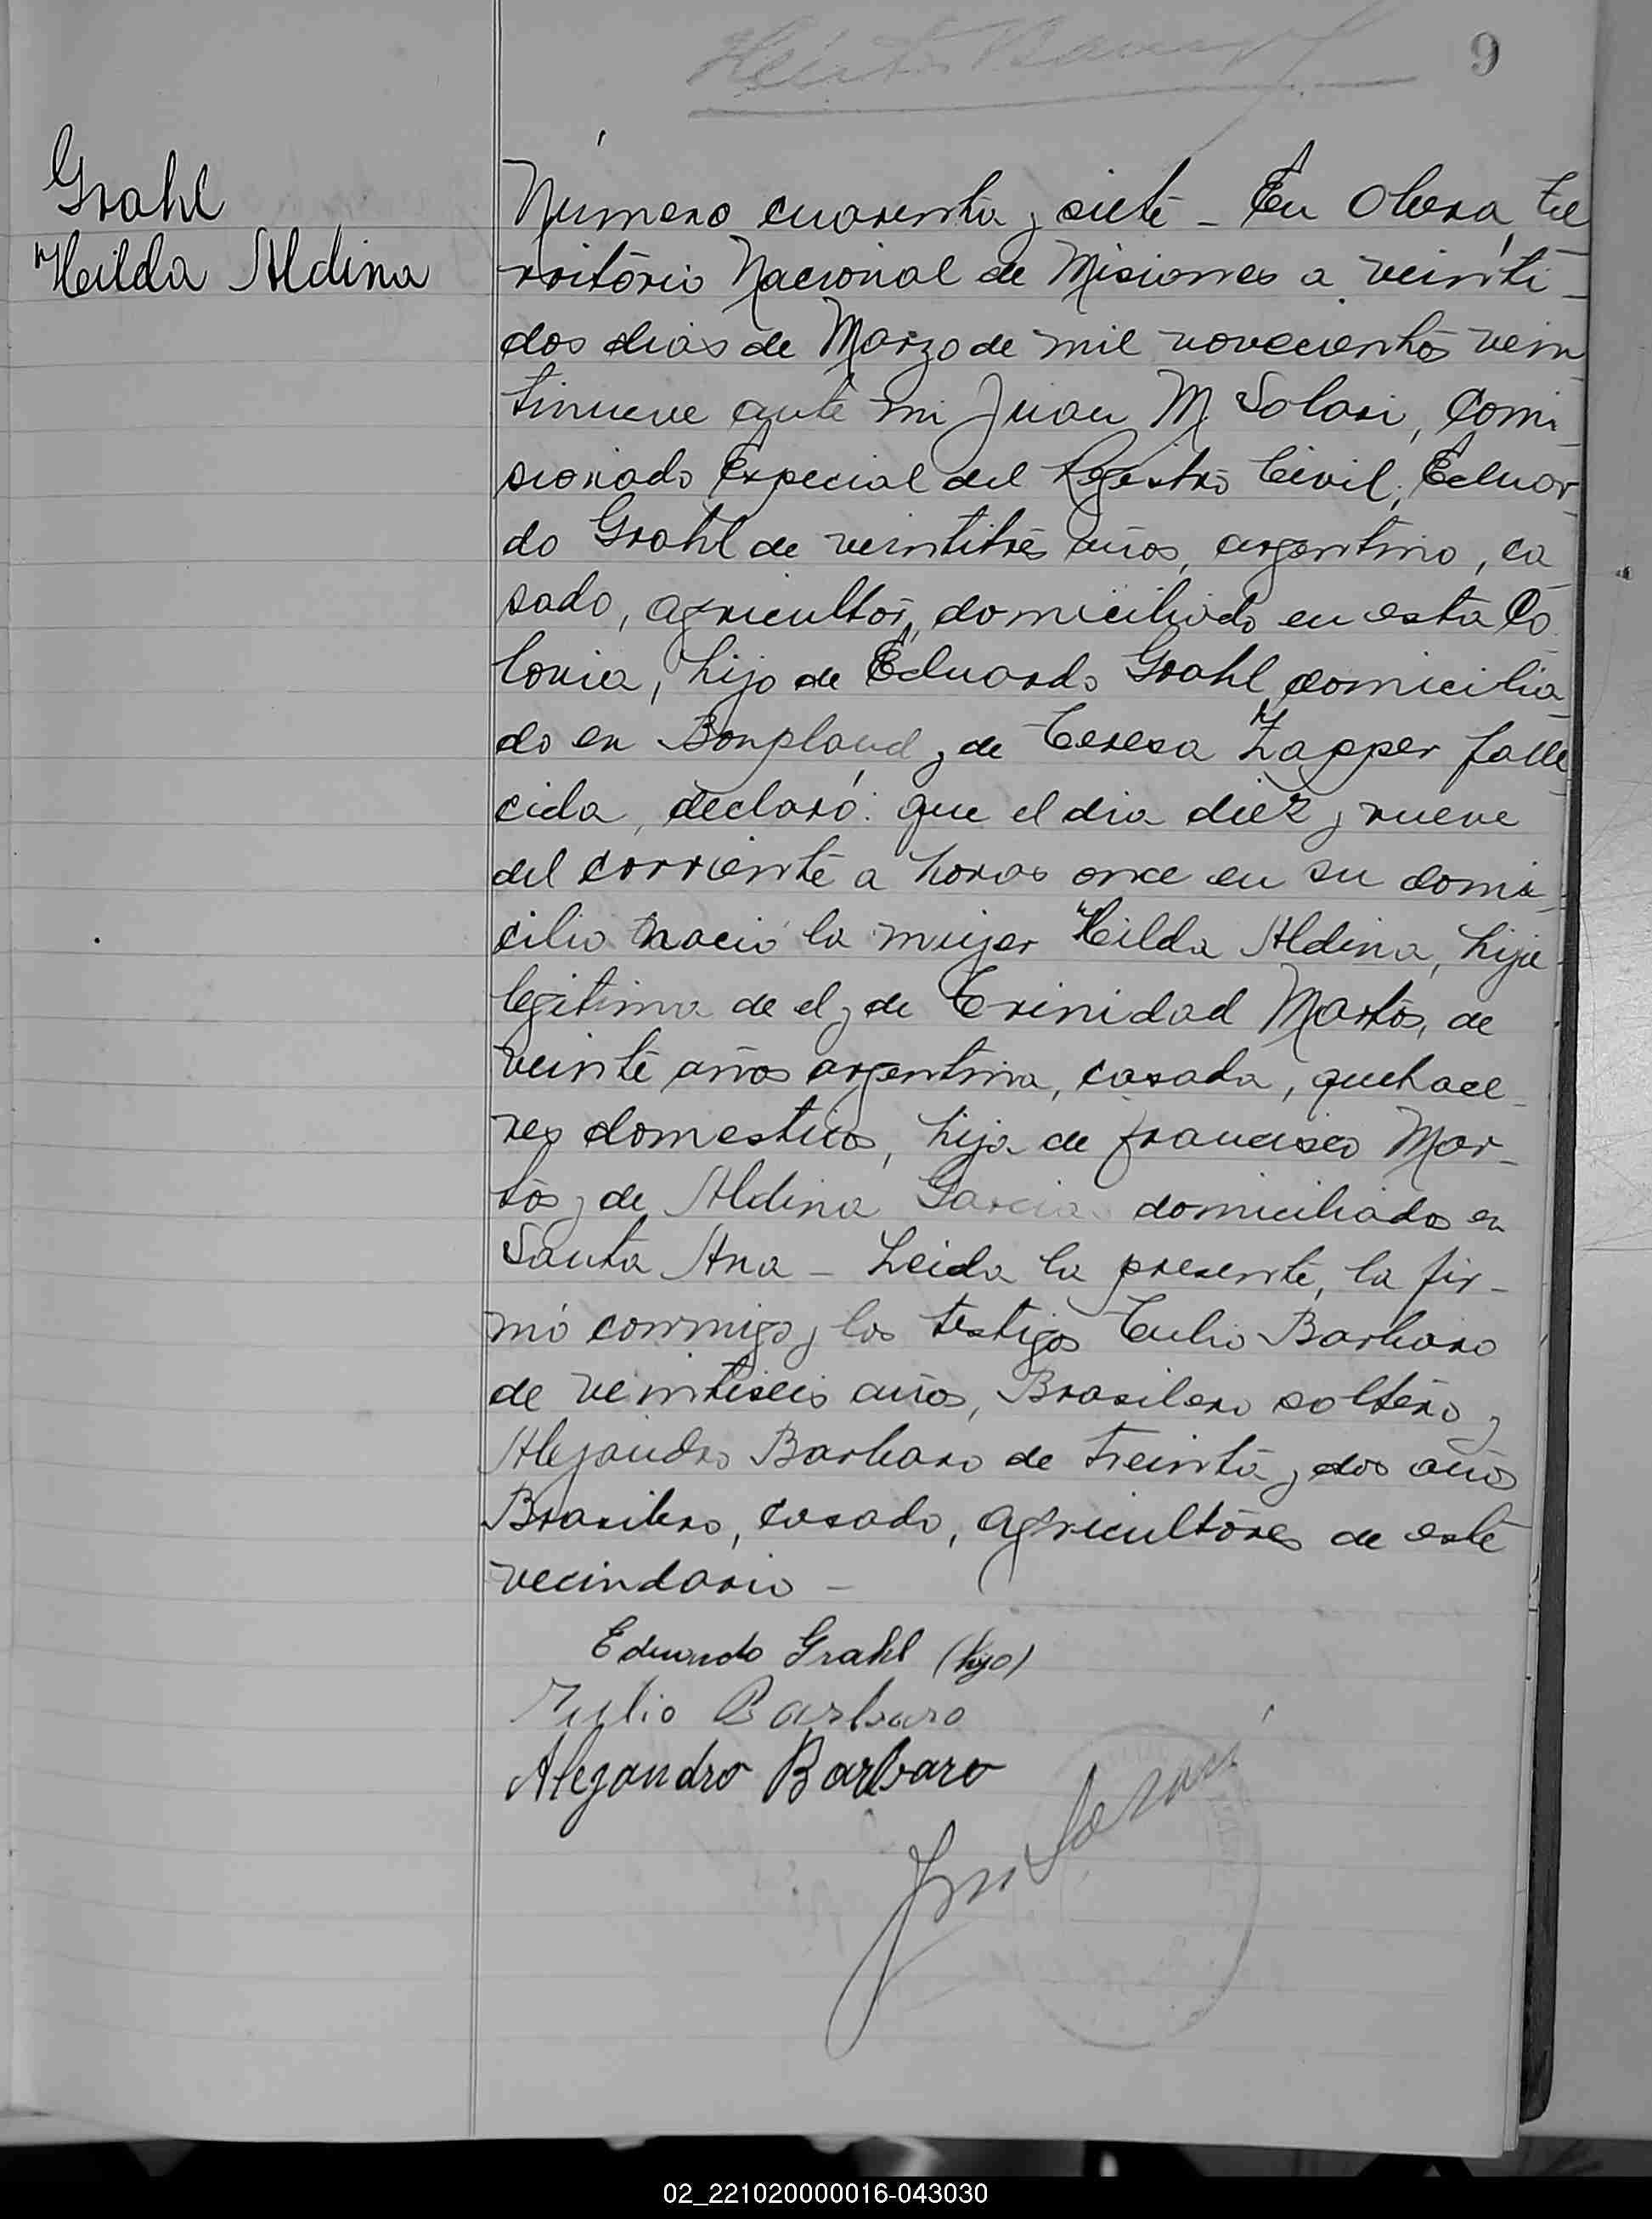 9
Grahl
Hilda Aldina
Número cuarenta y siete - En Obera, Te
rritorio Nacional de Misiones a veinti-
dos dias de Marzo de mil novecientos vein
tinueve ante mi Juan M. Solari, Comi
sionado Especial del Registro Civil, Eduar
do Grahl de veintitrés años, argentino, ca
sado, agricultor, domiciliado en esta Co
lonia, hijo de Eduardo Grahl domicilia
do en Bonpland y de Teresa Zapper falle
cida, declaró: que el dia diez y nueve
del corriente a horas once en su domi-
cilio nació la mujer Hilda Aldina, hija
legitima de el y de Trinidad Martos, de
veinte años argentina, casada, quehace-
res domesticos, hija de Francisco Mar-
tos y de Aldina Garcia domiciliados en
Santa Ana - Leida la presente, la fir-
mó conmigo y los testigos Tulio Barbaro
de veintiseis años, Brasilero soltero y
Alejandro Barbaro de treinta y dos años
Brasilero, casado, agricultores de este
vecindario -
Eduardo Grahl (hijo)
Tulio Barbaro
Alejandro Barbaro
02_221020000016-043030